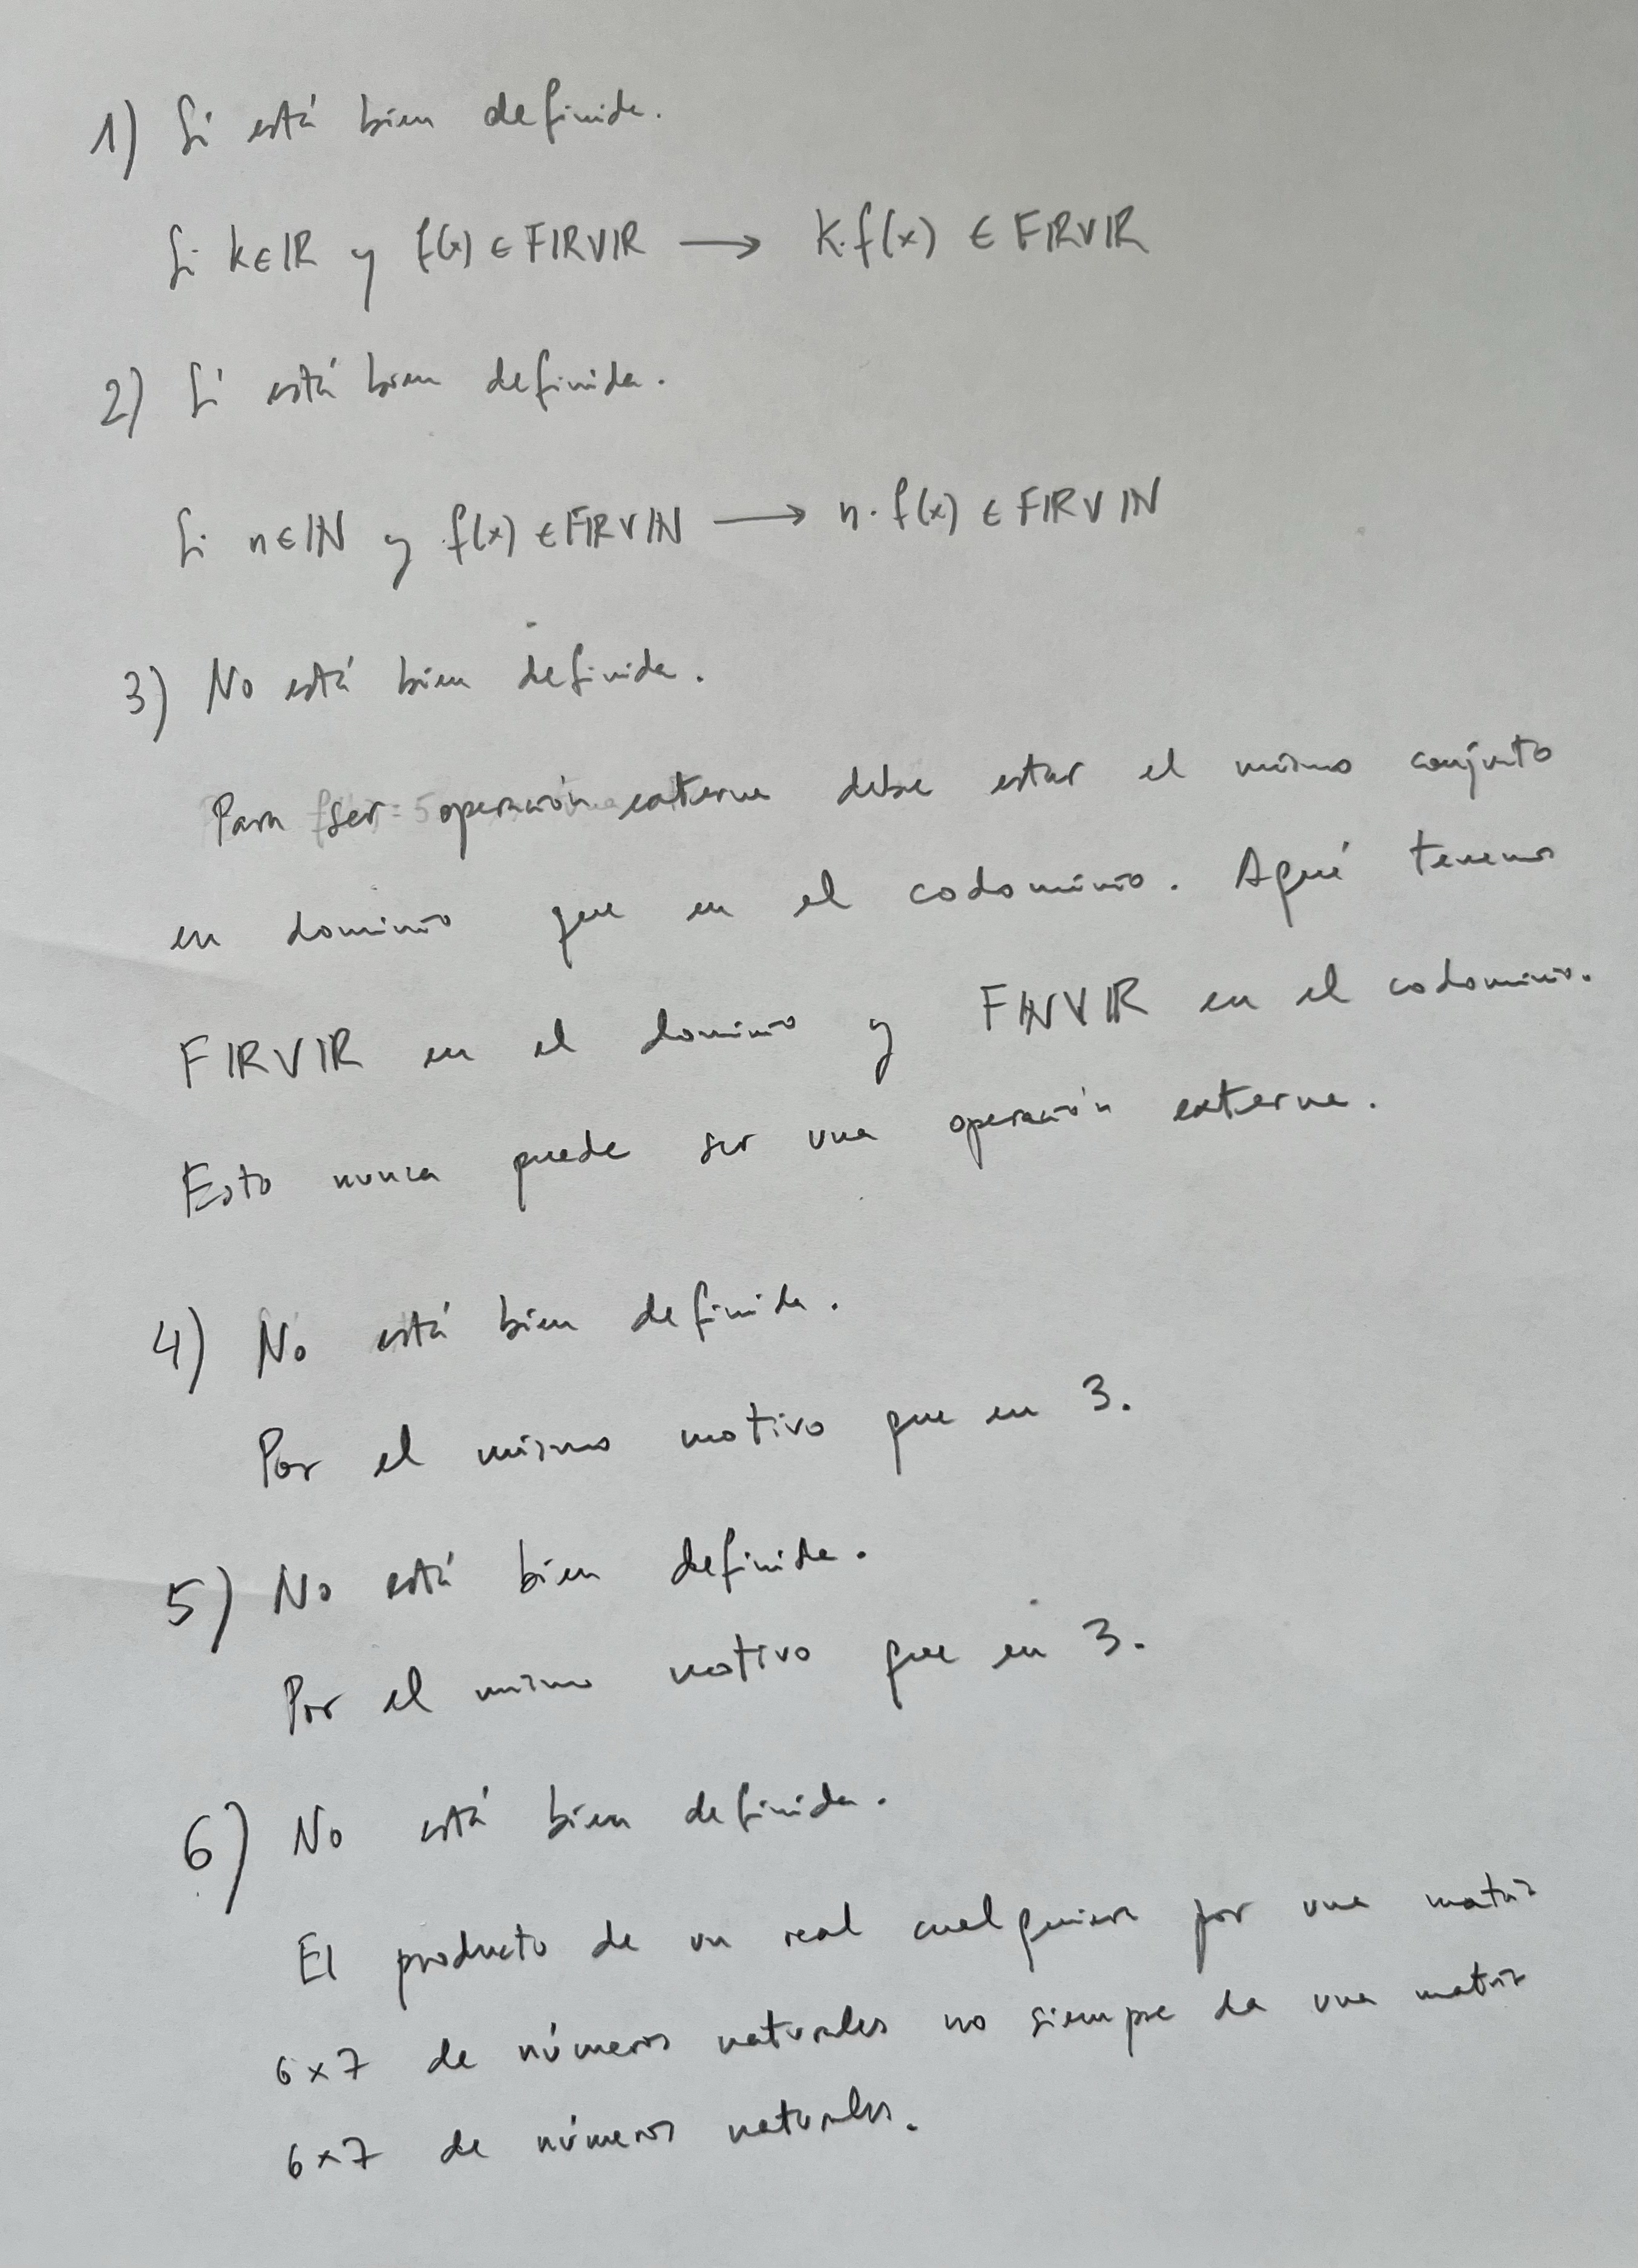 1) Sí está bien definida.
Si k∈IR y f(x) ∈ FIRVIR → K.f(x) ∈ FIRVIR
2) Sí está bien definida.
Si n∈IN y f(x) ∈ FIRVIN → n.f(x) ∈ FIRVIN
3) No está bien definida.
Para ser operación externa debe estar el mismo conjunto
en dominio que en el codominio. Aquí tenemos
FIRVIR en el dominio y FINVIR en el codominio.
Esto nunca puede ser una operación externa.
4) No está bien definida.
Por el mismo motivo que en 3.
5) No está bien definida.
Por el mismo motivo que en 3.
6) No está bien definida.
El producto de un real cualquiera por una matriz
6x7 de números naturales no siempre da una matriz
6x7 de números naturales.